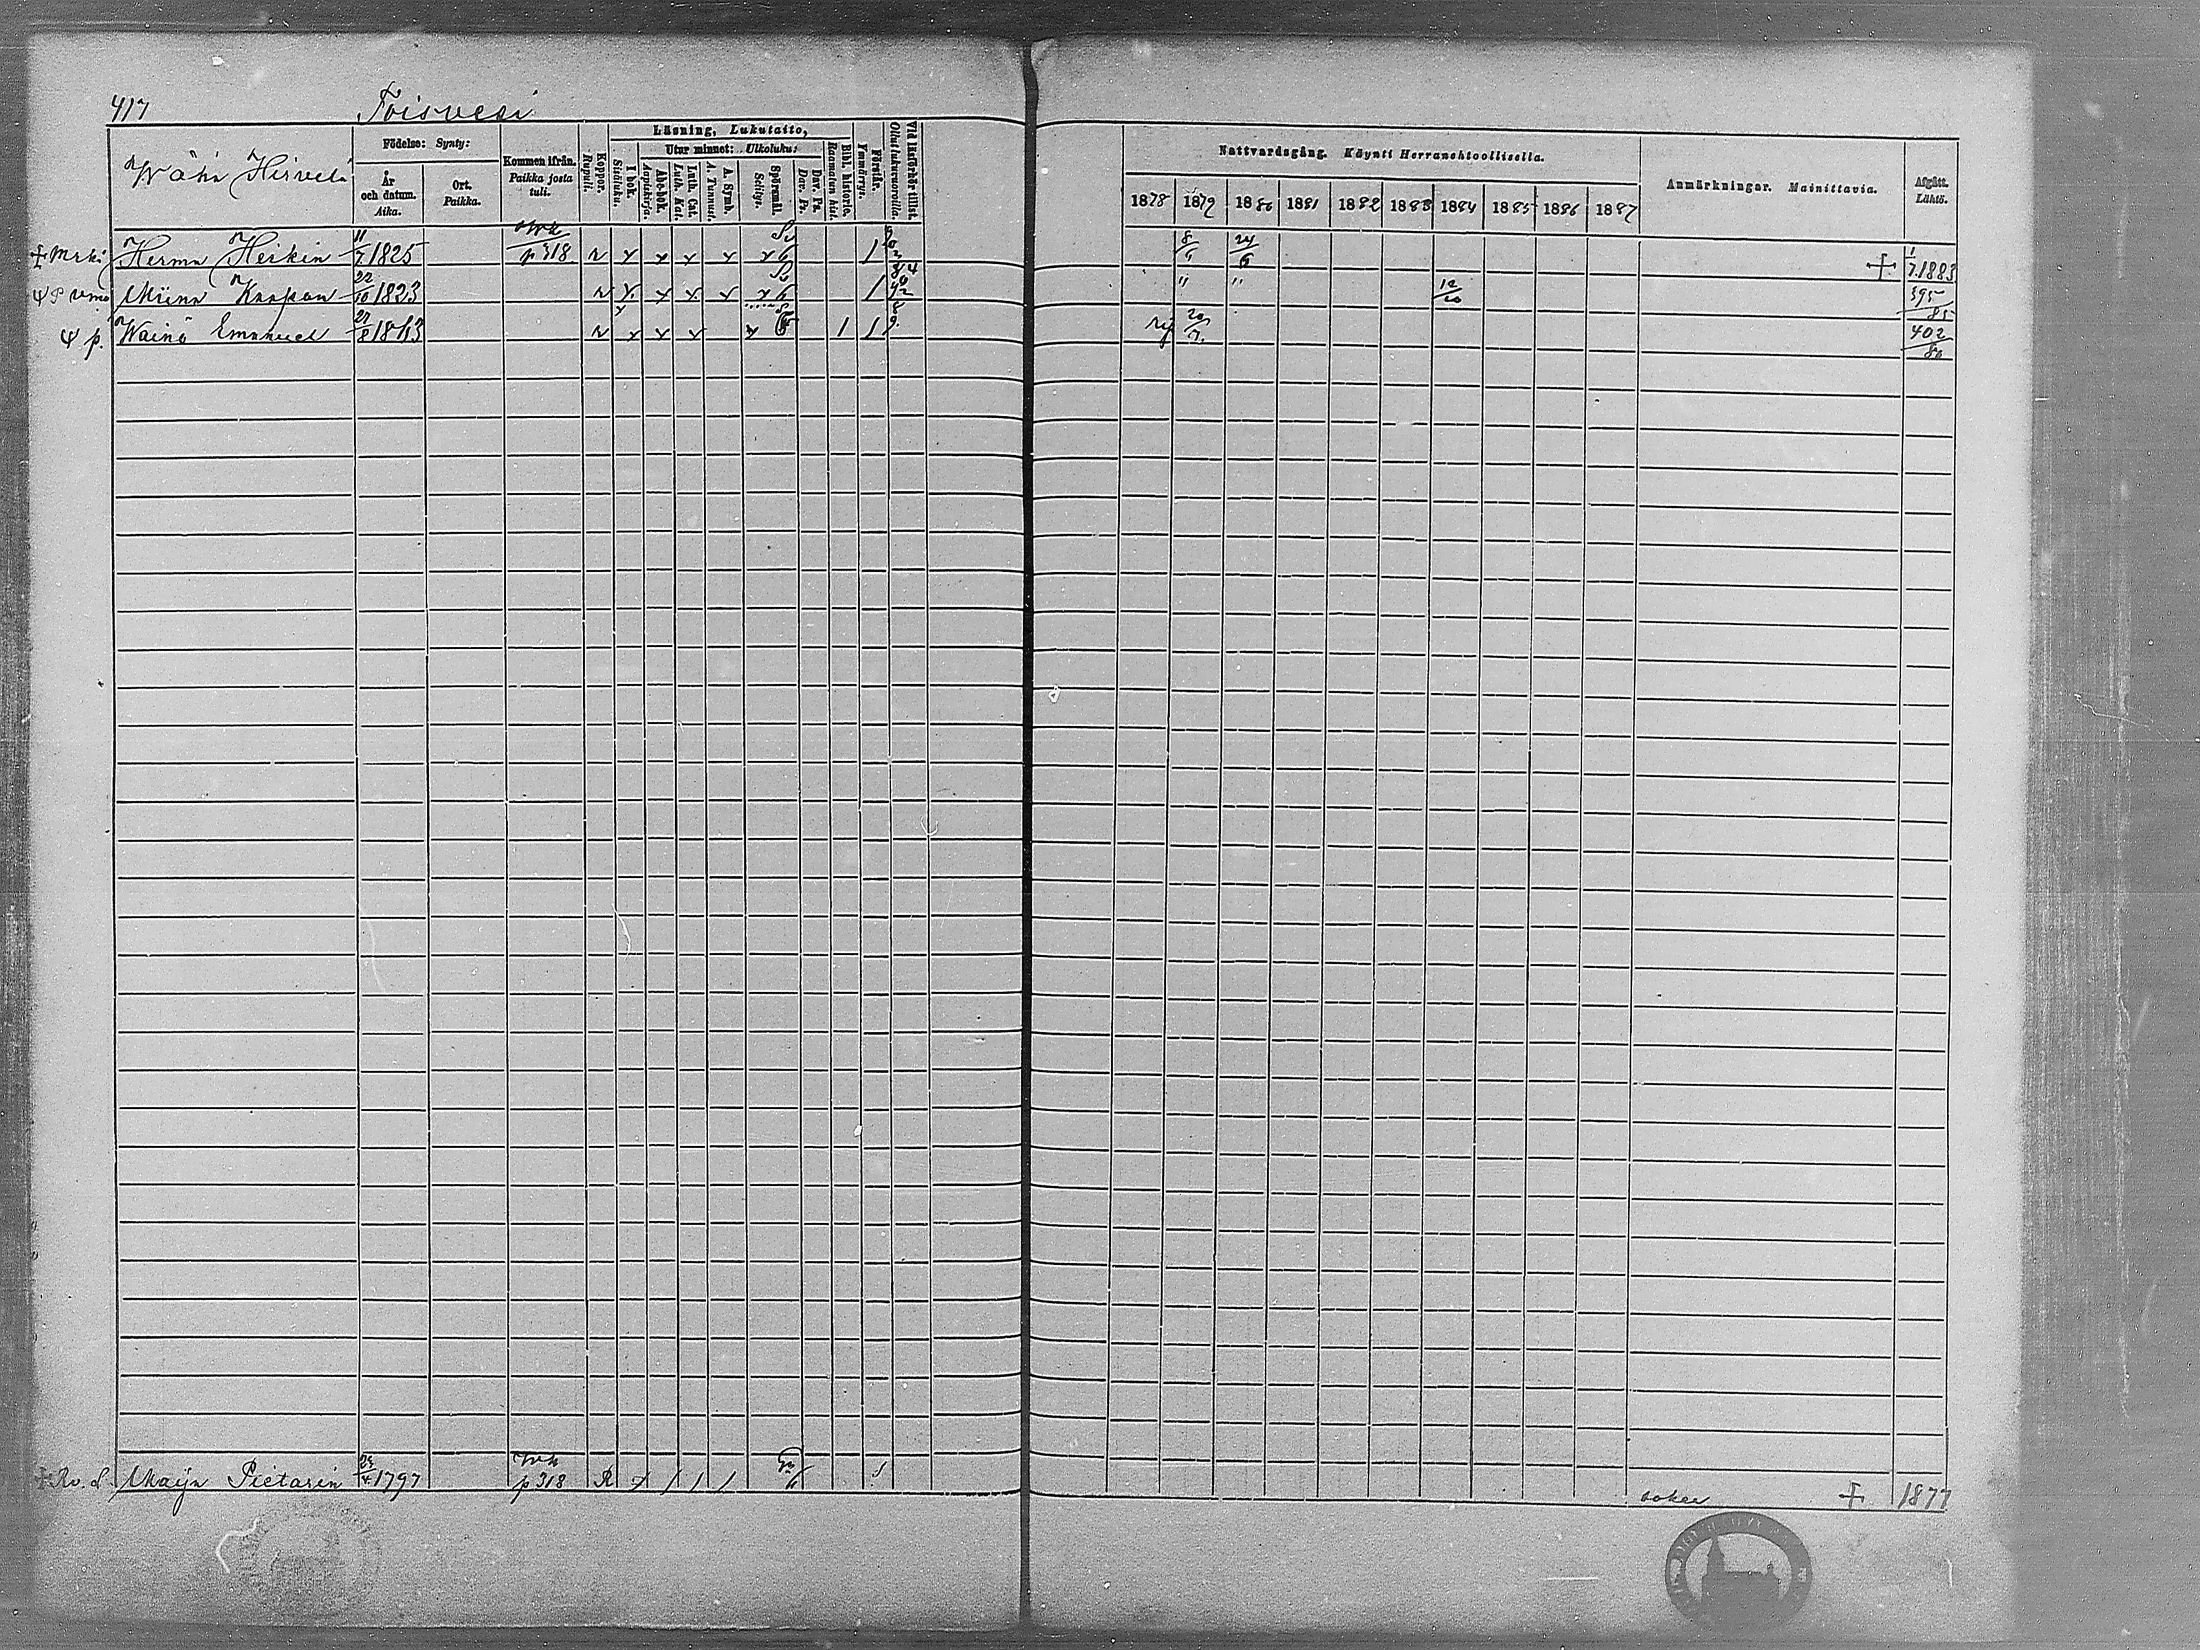 417 Toisvesi
Wähä Hirvelä
Födelse: Synty:
År och datum. Aika.
Ort. Paikka.
Kommen ifrån. Paikka josta tuli.
Koppor. Rupuli.
Läsning, Lukutaito,
I bok. Sisäluku.
Utur minnet: Ulkoluku:
Abc-bok. Aapiskirja.
Luth. Cat. Luth. Kat.
A. Symb. A. Tunnust.
Spörsmål. Selitys.
Dav. Ps. Dav. Ps.
Bibl. historie. Raamatun hist.
Förstår. Ymmärrys.
Vid läsförhör tillst. Ollut lukuvuoroilla.
Nattvardsgång. Käynti Herranehtoollisella.
1878 1879 1880 1881 1882 1883 1884 1885 1886 1887
Anmärkningar. Mainittavia.
Afgått. Lähtö.
Mrki Herman Heikin 11/7 1825 p 318 1 8/6 24/6 + 1/7 1883
Miina Kaapon 22/10 1823 1 " " 12/10 395/85
p. Wäinö Emanuel 27/8 1863 1 1 20/7 402/80
Ro. l. Maija Pietarin 1797 p 318 R sokea + 1877